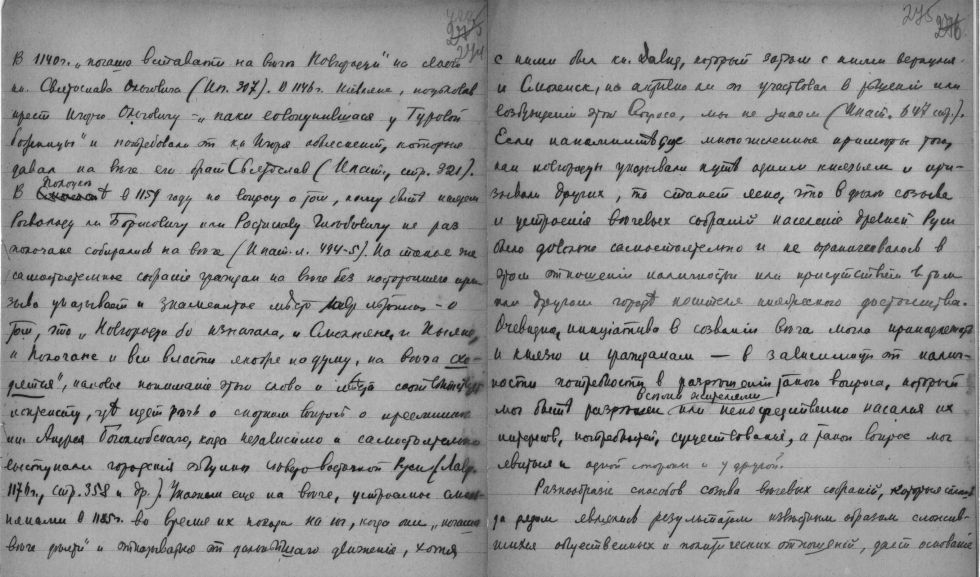 274
В 1140 г. "почаша въставати на вѣчи Новгородци" на своего
кн. Святослава Ольговича (Ип. 307). В 1146 г. Кіевляне, поцѣловав
крест Игорю Ольговичу - "паки совокупишася у Туровой
божницы" и потребовали от кн. Игоря объясненій, которые
давал на вѣче его брат Святослав (Ипат., стр. 321).
В Полоцкѣ в 1159 году по вопросу о том, кому быть князем
Рогволоду ли Борисовичу или Ростиславу Глѣбовичу не раз
полочане собирались на вѣче (Ипат. л. 494-5). На такое же
самостоятельное собраніе граждан на вѣче без посторонняго при-
зыва указывает и знаменитое мѣсто Лавр. лѣтописи - о
том, что "Новгородци бо изначала, и Смолняне, и Кыяне,
и Полочане и вси власти якоже на думу, на вѣча схо-
дятся", каковое пониманіе этого слова и мѣста соотвѣтствует
контексту, гдѣ идет рѣчь о спорном вопросѣ о преемниках
кн. Андрея Боголюбскаго, когда независимо и самостоятельно
выступали городскія общины сѣверо восточной Руси (Лавр.
1176 г., стр. 358 и др.). Укажем еще на вѣче, устроенное смол-
нянами в 1185 г. во время их похода на юг, когда они "почаша
вѣче дѣяти" и отказывался от дальнѣйшаго движенія, хотя
275
с ними был кн. Давид, который затѣм с ними вернулся
в Смоленск, но активно ли он участвовал в рѣшеніи или
возбужденіи этого вопроса, мы не знаем (Ипат. 647 стр.).
Если напомнить еще многочисленные примѣры того,
как новгородцы указывали путь одним князьям и при-
зывали других, то станет ясно, что в дѣлѣ созыва
и устроенія вѣчевых собраній населеніе древней Руси
было довольно самостоятельно и не ограничивалось в
этом отношеніи наличностью или присутствіем в том
или другом городѣ носителя княжескаго достоинства.
Очевидно, иниціатива в созваніи вѣча могла принадлежать
и князю и гражданам — в зависимости от налич-
ности потребности в разрѣшеніи такого вопроса, который
мог быть разрѣшен всѣми жителями или непосредственно касался их
интересов, потребностей, существованія, а такой вопрос мог
явиться и одной стороны и у другой.
Разнообразіе способов созыва вѣчевых собраній, которые
да рядом явились результатом извѣстным образом сложив-
шихся общественных и политических отношеній, дает основаніе